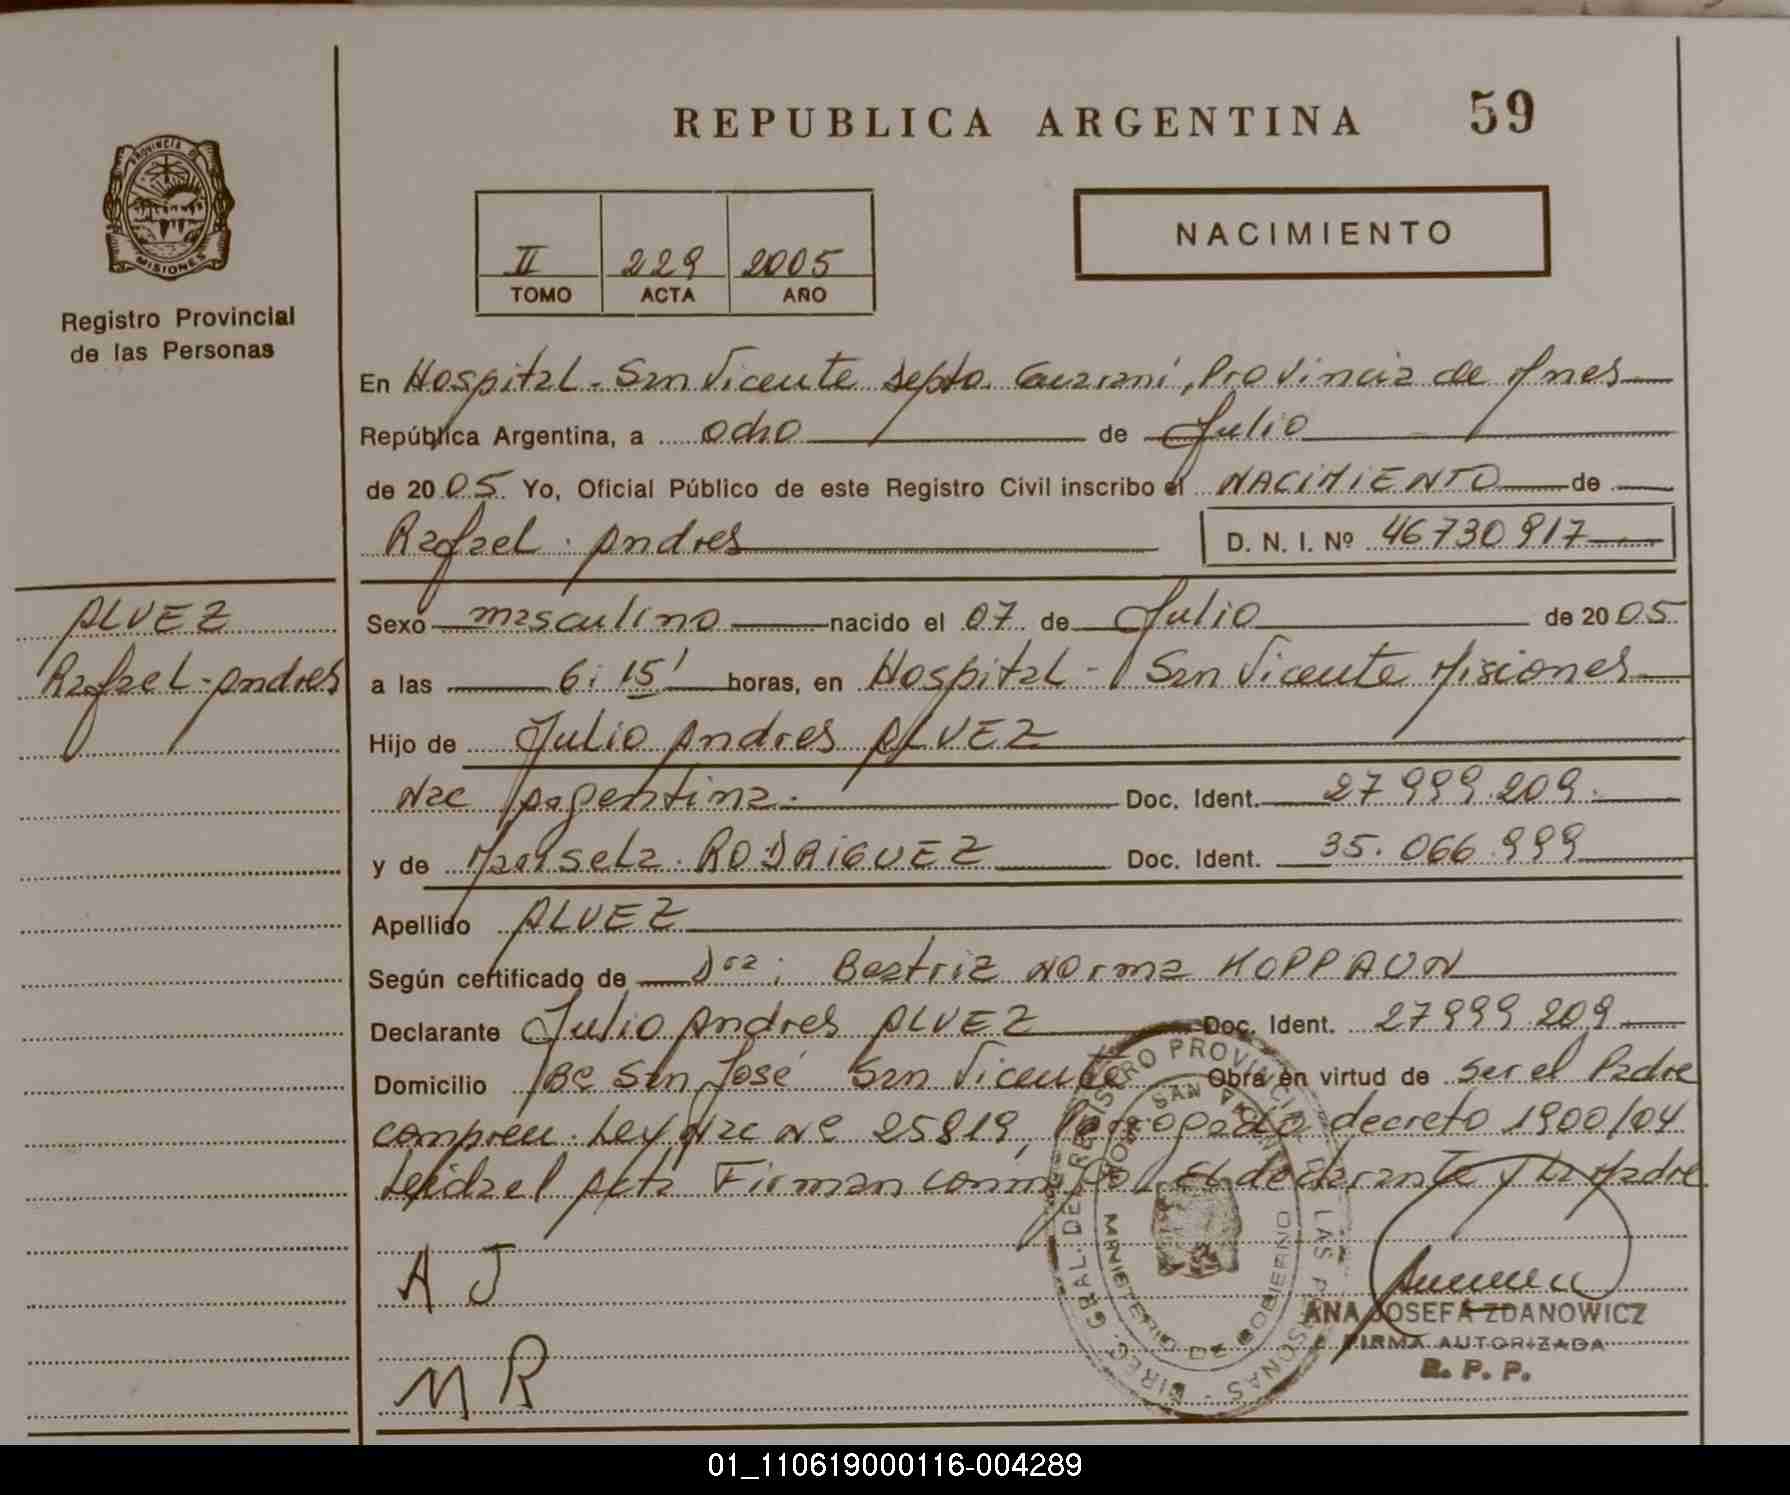 REPUBLICA ARGENTINA 59
PROVINCIA DE MISIONES
Registro Provincial
de las Personas
II 229 2005
TOMO ACTA AÑO
NACIMIENTO
En Hospital - San Vicente depto. Guaraní, Provincia de Mnes
República Argentina, a ocho de Julio
de 2005 Yo, Oficial Público de este Registro Civil inscribo el NACIMIENTO de
Rafael Andres D. N. I. Nº 46730917
ALVEZ
Rafael - Andres
Sexo masculino nacido el 07 de Julio de 2005
a las 6:15' horas, en Hospital - San Vicente Misiones
Hijo de Julio Andres ALVEZ
Nac Argentina. Doc. Ident. 27999.209.
y de Marisela RODRIGUEZ Doc. Ident. 35.066.999
Apellido ALVEZ
Según certificado de Dra: Beatriz Norma KOPPAUN
Declarante Julio Andres ALVEZ Doc. Ident. 27999209
Domicilio Bº San José San Vicente Obra en virtud de ser el Padre
compren. Ley Nac Nº 25819, Prorrogado decreto 1900/04
Leida el Acta Firman conmigo El declarante y La Madre
A J
M R
DIREC. GRAL. DEL REGISTRO PROVINCIAL DE LAS PERSONAS
SAN VICENTE
MINISTERIO DE GOBIERNO
ANA JOSEFA ZDANOWICZ
FIRMA AUTORIZADA
R. P. P.
01_110619000116-004289